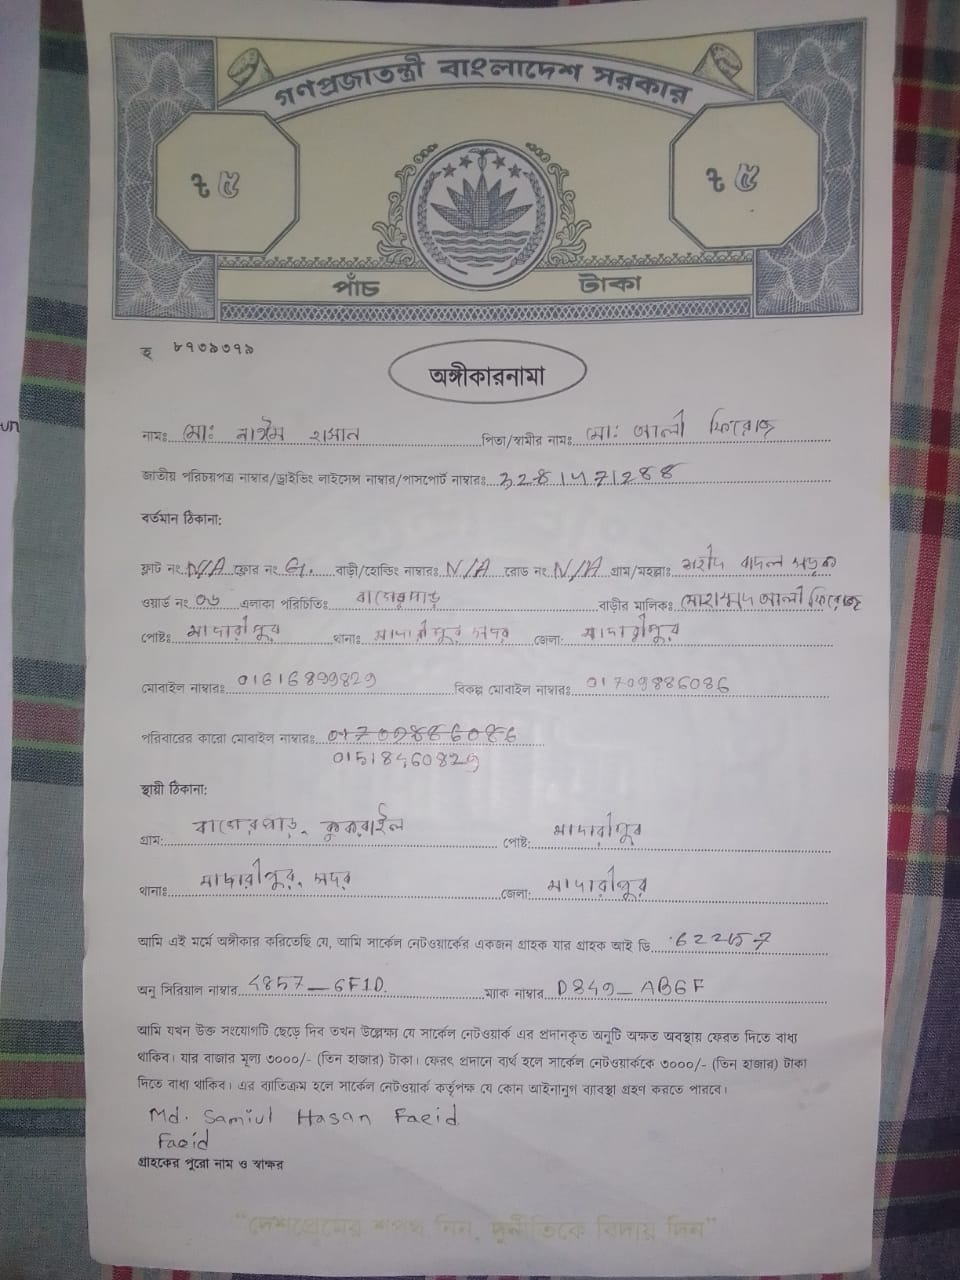 গণপ্রজাতন্ত্রী বাংলাদেশ সরকার
৳ ৫
৳ ৫
পাঁচ টাকা
হ ৮৭৩৯৩৭৯
অঙ্গীকারনামা
নামঃ মোঃ নাঈম হাসান পিতা/স্বামীর নামঃ মোঃ আলী ফিরোজ
জাতীয় পরিচয়পত্র নাম্বার/ড্রাইভিং লাইসেন্স নাম্বার/পাসপোর্ট নাম্বারঃ
বর্তমান ঠিকানা:
ফ্লাট নং N/A ফ্লোর নং G. বাড়ী/হোল্ডিং নাম্বারঃ N/A রোড নং N/A গ্রাম/মহল্লাঃ শহীদ বাদল সড়ক
ওয়ার্ড নং ০৬ এলাকা পরিচিতিঃ বাগেরপাড় বাড়ীর মালিকঃ মোহাম্মদ আলী ফিরোজ
পোষ্টঃ মাদারীপুর থানাঃ মাদারীপুর সদর জেলা: মাদারীপুর
মোবাইল নাম্বারঃ 01616899829 বিকল্প মোবাইল নাম্বারঃ 01709886086
পরিবারের কারো মোবাইল নাম্বারঃ 01709886086
01518460829
স্থায়ী ঠিকানা:
গ্রাম: বাগেরপাড়, কুকরাইল পোষ্ট: মাদারীপুর
থানাঃ মাদারীপুর, সদর জেলা: মাদারীপুর
আমি এই মর্মে অঙ্গীকার করিতেছি যে, আমি সার্কেল নেটওয়ার্কের একজন গ্রাহক যার গ্রাহক আই ডি
অনু সিরিয়াল নাম্বার 4857_6F1D. ম্যাক নাম্বার D849_AB6F
আমি যখন উক্ত সংযোগটি ছেড়ে দিব তখন উল্লেক্ষ্য যে সার্কেল নেটওয়ার্ক এর প্রদানকৃত অনুটি অক্ষত অবস্থায় ফেরত দিতে বাধ্য
থাকিব। যার বাজার মূল্য ৩০০০/- (তিন হাজার) টাকা। ফেরৎ প্রদানে ব্যর্থ হলে সার্কেল নেটওয়ার্ককে ৩০০০/- (তিন হাজার) টাকা
দিতে বাধ্য থাকিব। এর ব্যাতিক্রম হলে সার্কেল নেটওয়ার্ক কর্তৃপক্ষ যে কোন আইনানুগ ব্যাবস্থা গ্রহণ করতে পারবে।
Md. Samiul Hasan Faeid
Faeid
গ্রাহকের পুরো নাম ও স্বাক্ষর
"দেশপ্রেমের শপথ নিন, দুর্নীতিকে বিদায় দিন"